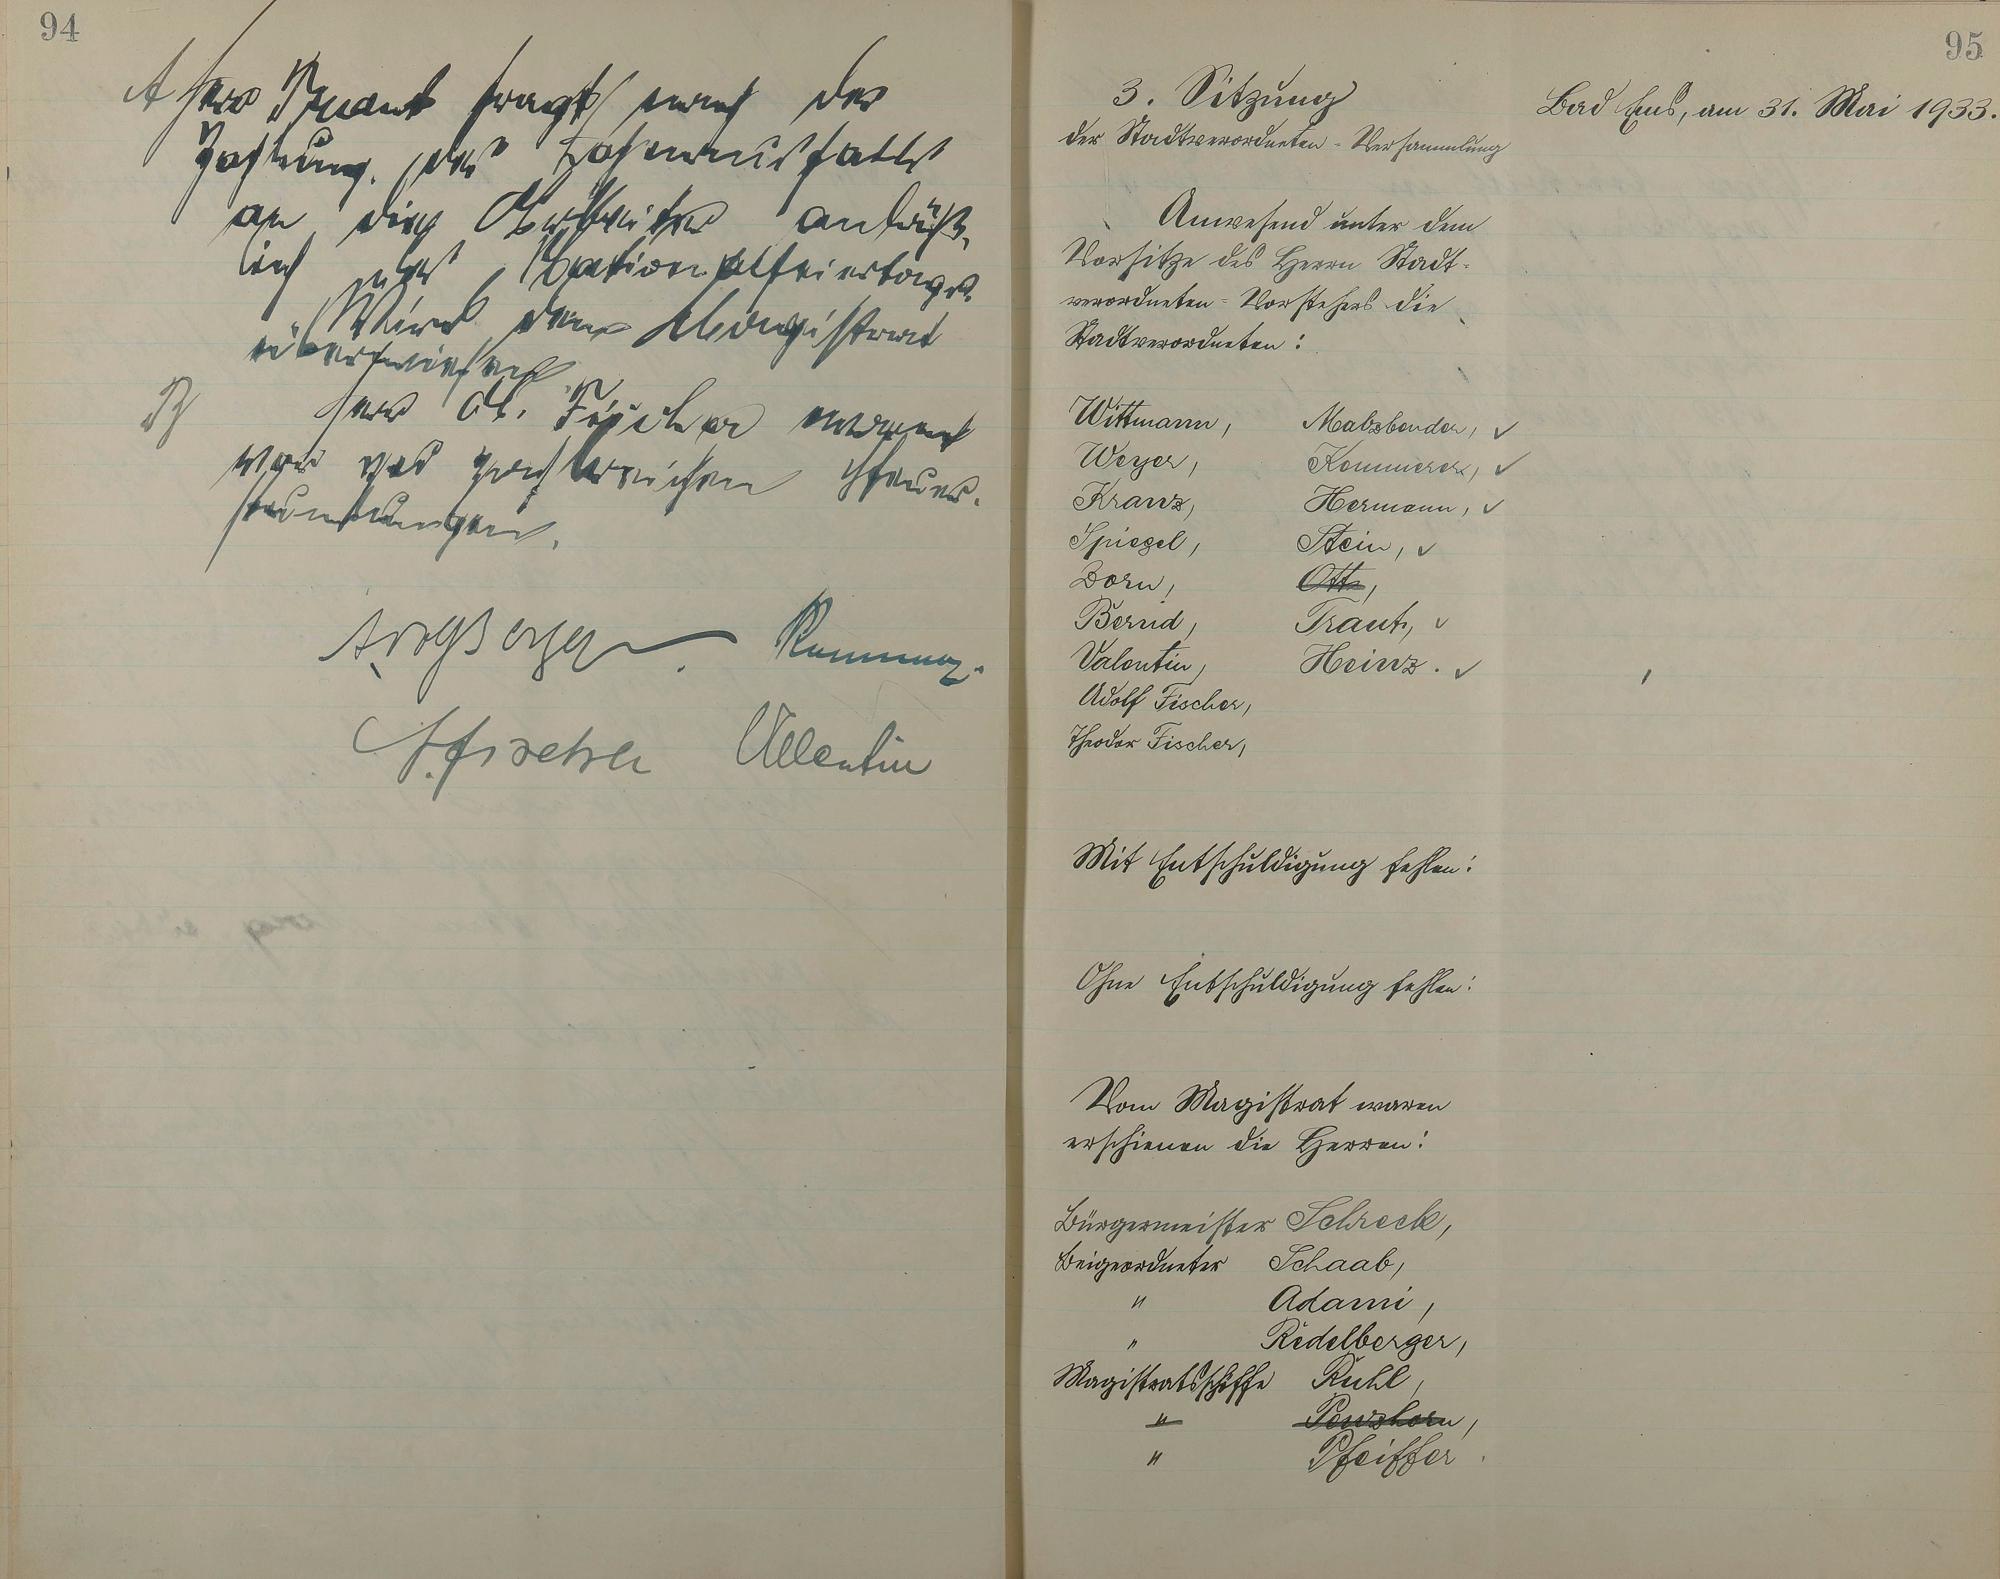 94
A Herr Traut fragt nach der
Zahlung des Lohnausfalls
an die Arbeiter anläß-
lich des Nationalfeiertages.
Wird dem Magistrat
überwiesen
B Herr A. Fischer warnt
vor den zahlreichen Steuer-
senkungen.
Kammerer.
A. Fischer Valentin
95
3. Sitzung
der Stadtverordneten-Versammlung
Bad Ems, am 31. Mai 1933.
Anwesend unter dem
Vorsitze des Herrn Stadt-
verordneten-Vorstehers die
Stadtverordneten:
Wittmann, Malzbender, ✓
Weyer, Kommerer, ✓
Kranz, Hermann, ✓
Spiegel, Stein, ✓
Dorn, Ott,
Bernd, Traut, ✓
Valentin, Heinz. ✓
Adolf Fischer,
Theodor Fischer,
Mit Entschuldigung fehlen:
Ohne Entschuldigung fehlen:
Vom Magistrat waren
erschienen die Herren:
Bürgermeister Schreck,
Beigeordneter Schaab,
" Adami,
" Redelberger,
Magistratsschöffe Ruhl,
"
" Pfeiffer